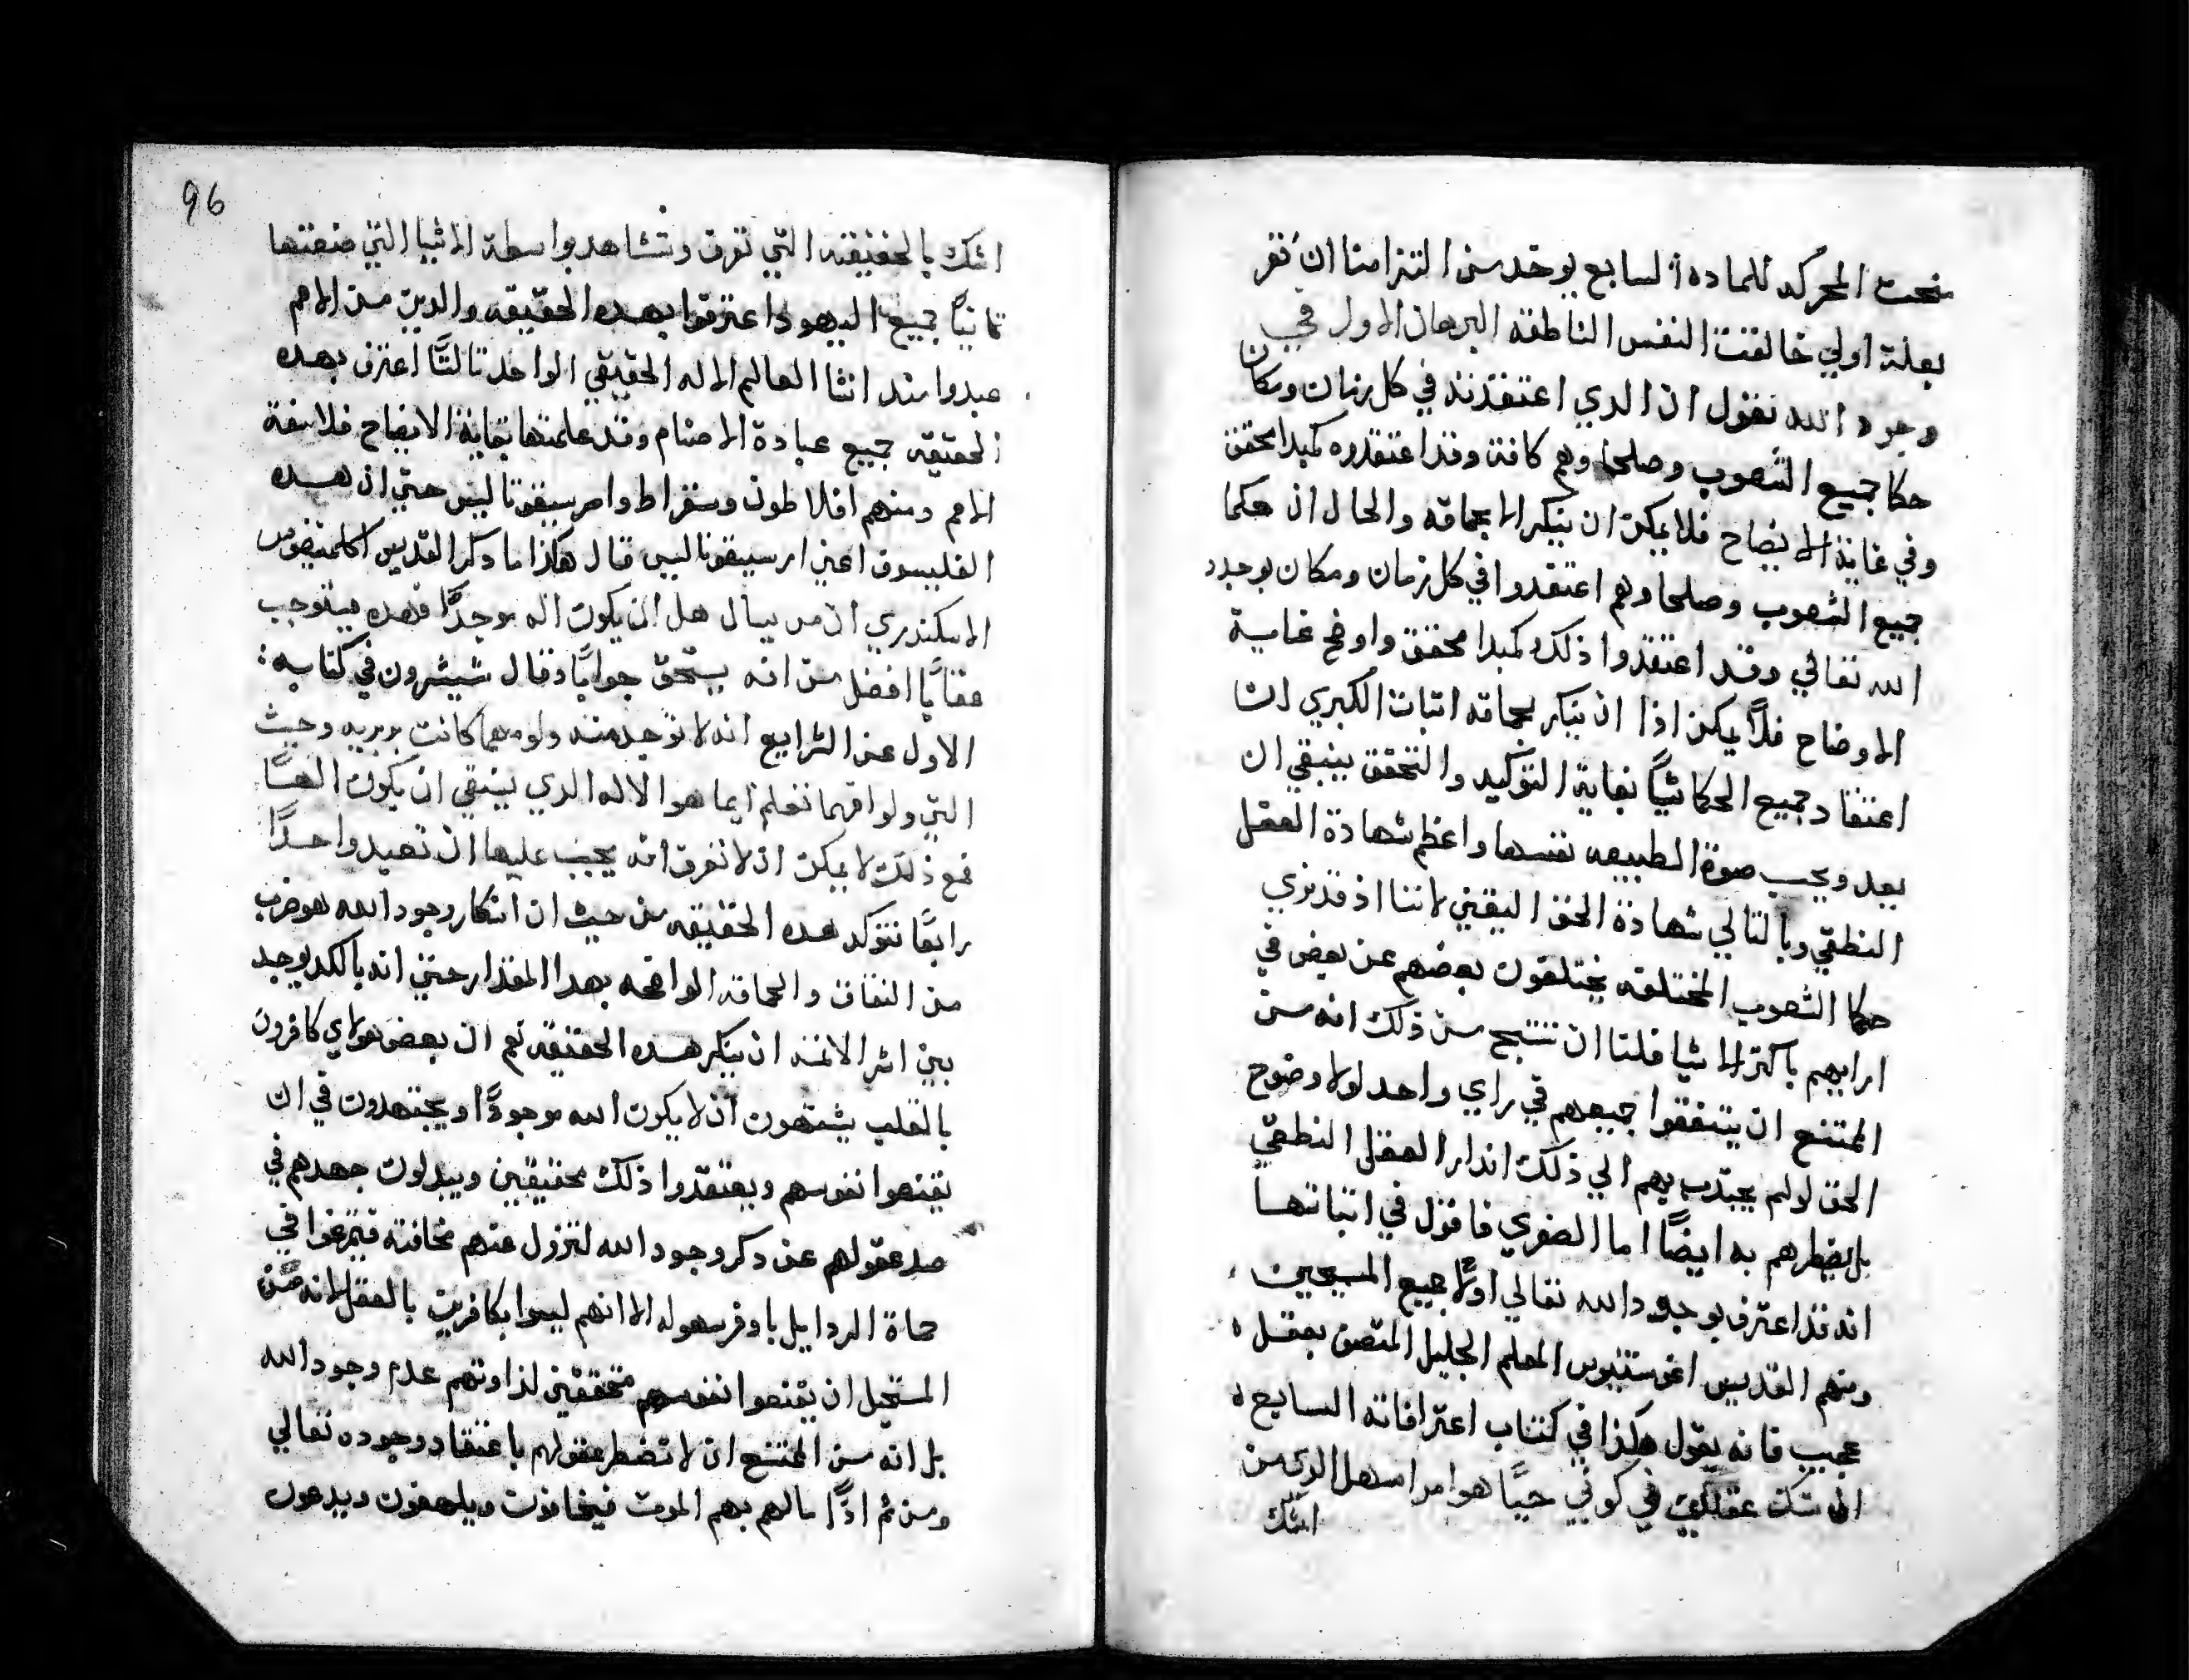 نحت المحركه للماده السابع يوخد من التزامنا ان نقر
بعلة اولي خالقت النفس الناطقه البرهان الاول في
وجود الله نقول ان الدي اعتقدته في كل زمان ومكان
حكما جميع الشعوب وصلحاوهم كافة وقد اعتقدوه كمبدا محقق
وفي غاية الايضاح فلا يمكن ان ينكر الا بحماقه والحال ان حكما
جميع الشعوب وصلحاوهم اعتقدوا في كل زمان ومكان بوجود
الله تعالي وقد اعتقدوا ذلك كمبدا محقق واوضح غاية
الاوضاح فلا يمكن اذا ان ينكر بحماقه اتبات الكبري ان
اعتقاد جميع الحكما شيًا بغاية التوكيد والتحقق ينبقي ان
يعد ويحسب صوة الطبيعه نفسها واعظم شهادة العقل
النطقي وبالتالي شهادة الحق اليقين لاننا اذ قد نري
حكما الشعوب المختلفه يختلفون بعضهم عن بعض في
ارايهم باكتر الاشيا فلنا ان نستنتج من ذلك انه من
الممتنع ان يتفقوا جميعهم في راي واحد لولا وضوح
الحق لو لم يجتدب بهم الي ذلك اندار العقل النطقي
بل يضطرهم به ايضًا اما الصغري فاقول في اتباتها
انه قد اعترف بوجود الله تعالي اولًا جميع المسيحيين
ومنهم القديس اغوستنيوس المعلم الجليل المتصف بعقل
عجيب فانه يقول هكذا في كتاب اعترافاته السابع
ان شك عقلك في كوني حيًا هو امر اسهل الي من
اشك
96
اشك بالحقيقه التي تعرف وتشاهد بواسطة الاشيا التي صنعتها
تانيًا جميع اليهود اعترفوا بهده الحقيقه والدين من الامم
عبدوا مند انشا العالم الاله الحقيقي الواحد تالتًا اعترف بهده
الحقيقه جميع عبادة الاصنام وقد علمتها بغاية الايضاح فلاسفة
الامم ومنهم افلاطون وسقراط وامرسيقوتاليس حتي ان هده
الفليسوف اعني ارسيقوتاليس قال هكذا ما دكر القديس اكليمنضوس
الاسكندري ان من يسال هل ان يكون اله موجدًا فهده يستوجب
عقابًا افضل من انه يستحق جوابًا وقال شيشرون في كتابه
الاول عن الشرايع انه لا توجد منه ولو مهما كانت بربريه وحيث
التي ولو افهما تعلم ايما هو الاله الدي ينبقي ان يكون الهًا
فمع ذلك لا يمكن ان لا تعرف انه يجب عليها ان تعبد واحدًا
رابعًا تتوكد هده الحقيقه من حيث ان انكار وجود الله هو ضرب
من النفاق والحماقه الواقحه بهدا المقدار حتي انه بالكد يوجد
بين اشر الائمه ان ينكر هده الحقيقه نعم ان بعض هولاي كافرون
بالقلب يشتهون ان لا يكون الله موجودًا ويجتهدون في ان
يقنعوا نفوسهم ويعتقدوا ذلك محقيقين ويبدلون جهدهم في
صد عقولهم عن دكر وجود الله لتزول عنهم مخافته فيتمرغوا في
حماة الردايل باوفر سهوله الا انهم ليسوا بكافرين بالعقل لانه من
المستحيل ان يقنعوا نفوسهم متحققين لداوتهم عدم وجود الله
بل انه من الممتنع ان لا تضطر عقولهم باعتقاد وجوده تعالي
ومن ثم اذًا ما لهم بهم الموت فيخافون ويلهفون ويدعون